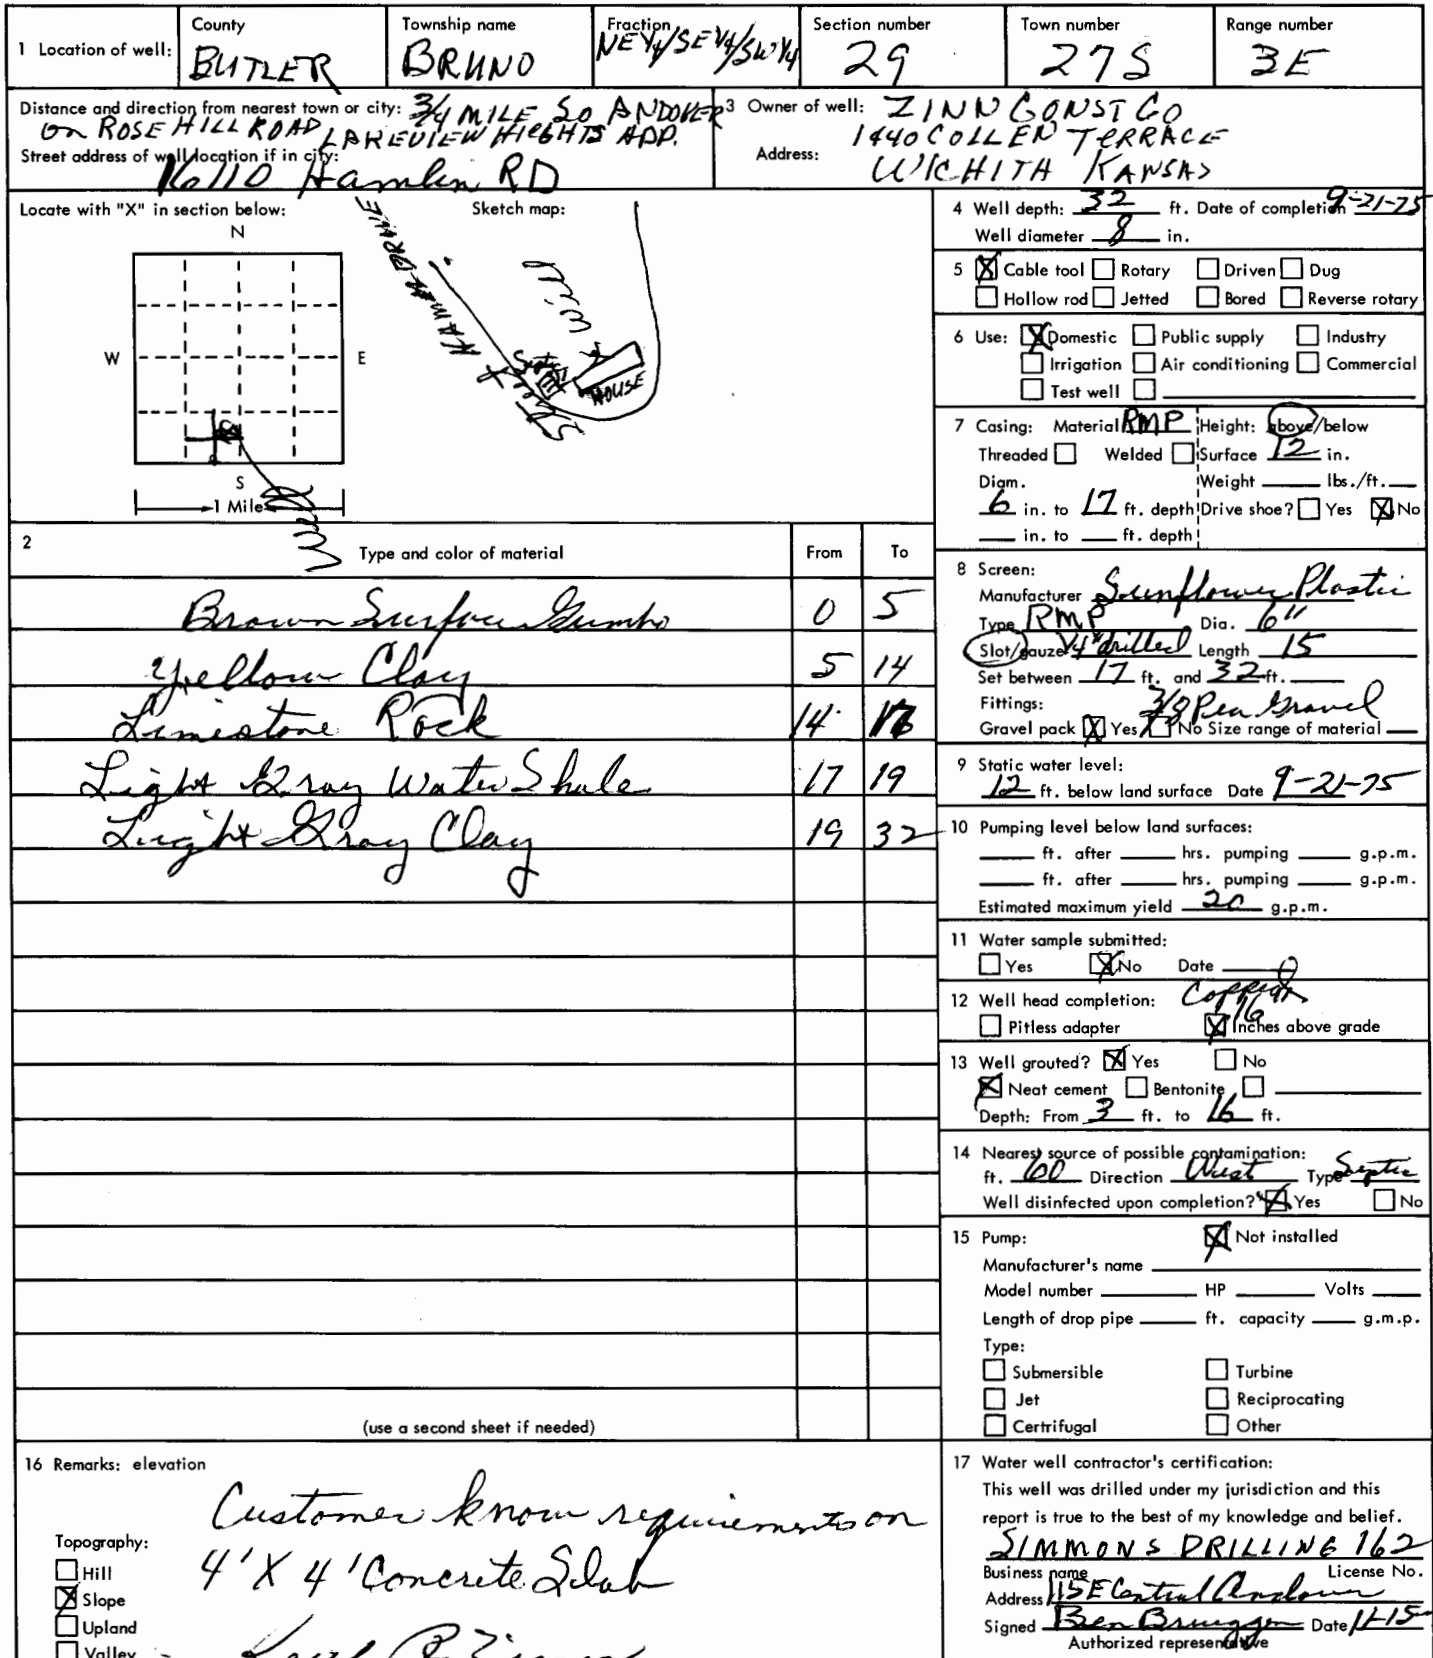 1 Location of well: County BUTLER Township name BRUNO Fraction NE 1/4/SE 1/4/SW 1/4 Section number 29 Town number 27S Range number 3E
Distance and direction from nearest town or city: 3/4 MILE SO ANDOVER
on ROSE HILL ROAD LAKEVIEW HIEGHTS ADD.
Street address of well location if in city:
16110 Hamlin RD
3 Owner of well: ZINN CONST CO
1440 COLLEN TERRACE
Address: WICHITA KANSAS
Locate with "X" in section below:
N
W E
S
1 Mile
Sketch map:
Well
HOUSE
Street
4 Well depth: 32 ft. Date of completion 9-21-75
Well diameter 8 in.
5 X Cable tool Rotary Driven Dug
Hollow rod Jetted Bored Reverse rotary
6 Use: X Domestic Public supply Industry
Irrigation Air conditioning Commercial
Test well
7 Casing: Material RMP Height: above/below
Threaded Welded Surface 12 in.
Diam. Weight lbs./ft.
6 in. to 17 ft. depth Drive shoe? Yes X No
in. to ft. depth
2 Type and color of material From To
Brown Surface Gumbo 0 5
Yellow Clay 5 14
Limestone Rock 14
Light Gray Water Shale 17 19
Light Gray Clay 19 32
(use a second sheet if needed)
8 Screen:
Manufacturer Sunflower Plastic
Type RMP Dia. 6"
Slot/gauze 1/4" drilled Length 15
Set between 17 ft. and 32 ft.
Fittings: 3/8 Pea Gravel
Gravel pack X Yes No Size range of material
9 Static water level:
12 ft. below land surface Date 9-21-75
10 Pumping level below land surfaces:
ft. after hrs. pumping g.p.m.
ft. after hrs. pumping g.p.m.
Estimated maximum yield 20 g.p.m.
11 Water sample submitted:
Yes X No Date
12 Well head completion:
Pitless adapter X 16 Inches above grade
13 Well grouted? X Yes No
X Neat cement Bentonite
Depth: From 3 ft. to 16 ft.
14 Nearest source of possible contamination:
ft. 60 Direction West Type Septic
Well disinfected upon completion? X Yes No
15 Pump: X Not installed
Manufacturer's name
Model number HP Volts
Length of drop pipe ft. capacity g.m.p.
Type:
Submersible Turbine
Jet Reciprocating
Certrifugal Other
16 Remarks: elevation
Customer know requirements on
4' X 4' Concrete Slab
Topography:
Hill
X Slope
Upland
Valley
17 Water well contractor's certification:
This well was drilled under my jurisdiction and this
report is true to the best of my knowledge and belief.
SIMMONS DRILLING 162
Business name License No.
Address 115 E Central Andover
Signed Ben Bruggen Date 11-15
Authorized representative